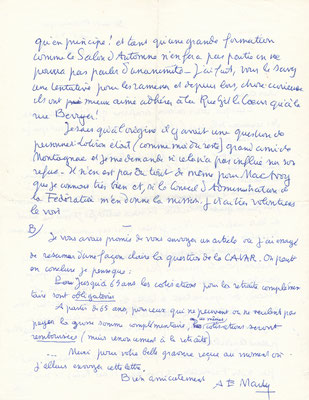 qu'en principe! et tant qu'une grande formation
comme le Salon d'Automne n'en fera pas partie on ne
pourra pas parler d'unanimité — J'ai fait, vous le savez
une tentative pour les ramener et depuis lors, chose curieuse
ils ont mieux aimé adhérer à la Rue Gît le Coeur qu'à la
rue Berryer!
Je sais qu'à l'origine il y avait une question de
personnes. Lotiron était (comme moi du reste) grand ami de
Montagnac et je me demande si cela n'a pas influé sur son
refus. Il n'en est pas du tout de même pour Mac Avoy
que je connais très bien et, si le Conseil d'Administration de
la Fédération m'en donne la mission j'irai très volontiers
le voir
B/ Je vous avais promis de vous envoyer un article où j'ai essayé
de résumer d'une façon claire la question de la CAVAR. On peut
en conclure je pense que:
Jusqu'à 65 ans les cotisations pour la retraite complémen-
taire sont obligatoires
A partir de 65 ans, pour ceux qui ne peuvent ou ne veulent pas
payer la grosse somme complémentaire, cotisations seront
remboursées (mais renoncement à la retraite)
... Merci pour votre belle gravure reçue au moment où
j'allais envoyer cette lettre.
Bien amicalement A E Marty